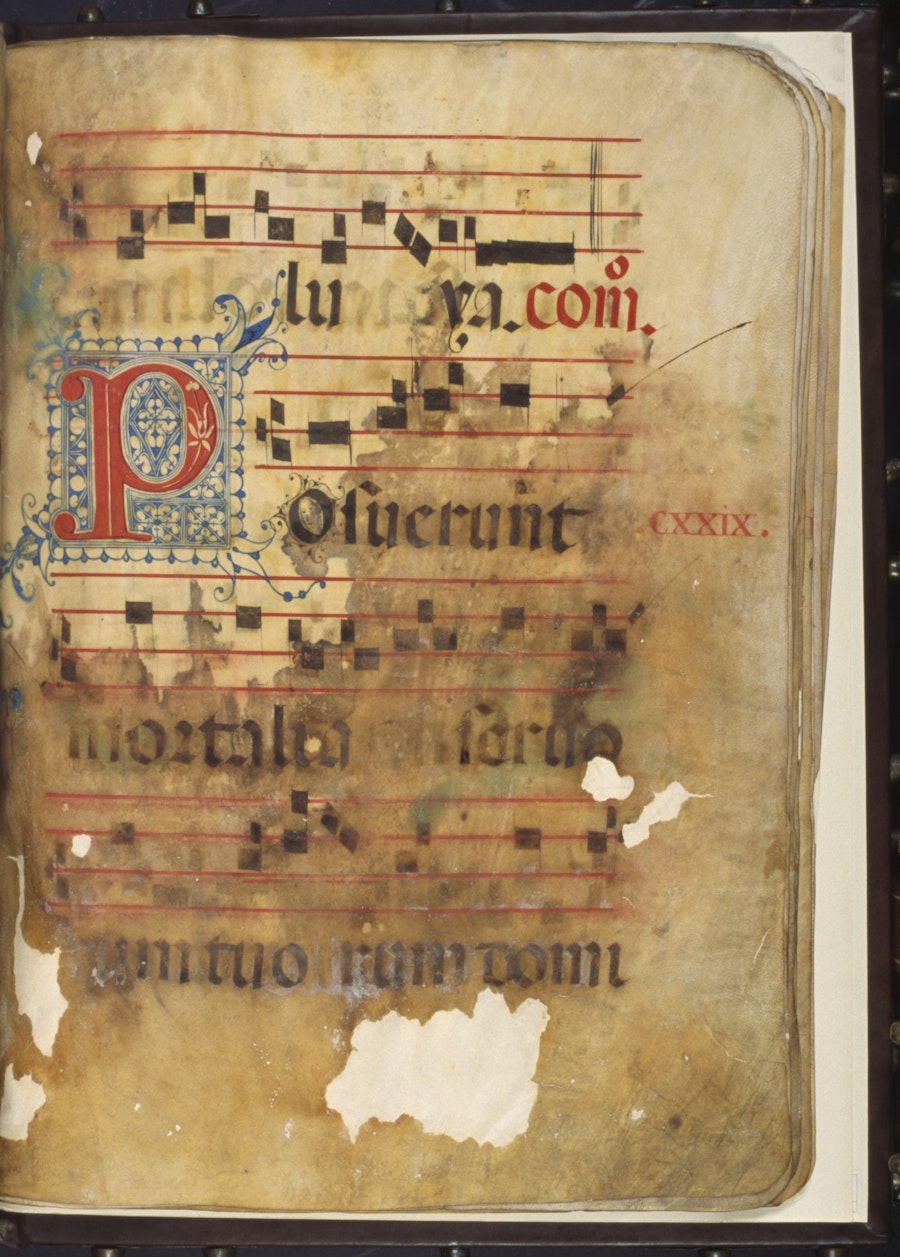 lu ya. com̃.
Posuerunt
CXXIX.
mortalia seruo
rum tuo rum domi